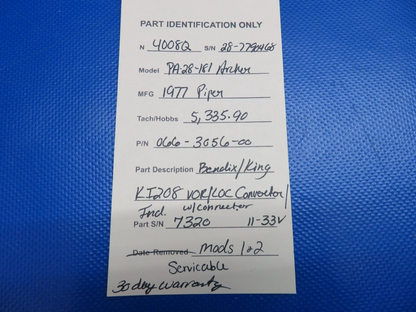 PART IDENTIFICATION ONLY
N 4008Q S/N 28-7790468
Model PA28-181 Archer
MFG 1977 Piper
Tach/Hobbs 5,335.90
P/N 066-3056-00
Part Description Bendix/King
KI208 VOR/LOC Converter/
Ind. w/connector
Part S/N 7320 11-33V
Date Removed Mods 1 & 2
Servicable
30 day warranty